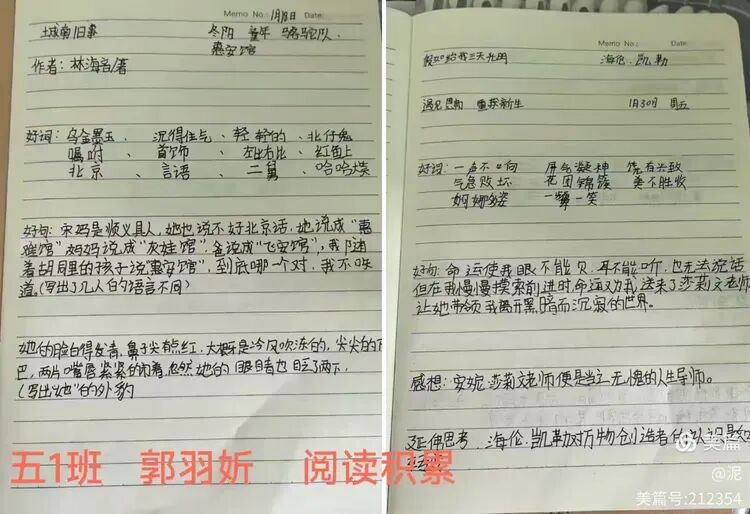 Memo No.: 1月18日 Date:
城南旧事 冬阳 童年 骆驼队
惠安馆
作者:林海音/著
好词:乌金墨玉、沉得住气、轻轻的、北仔鬼
嘱咐、首饰、左比右比、红着上
北京、言语、二舅、哈哈
好句:宋妈是顺义县人,她也说不好北京话,她说成“惠
难馆”妈妈说成“灰娃馆”,爸说成“飞安馆”,我随
着胡同里的孩子说“惠安馆”,到底哪一个对,我不知
道。(写出了几人的语言不同)
她的脸白得发青,鼻子尖有点红,大概是冷风吹冻的,尖尖的下
巴,两片嘴唇紧紧的闭着,忽然她的眼睛也眨了两下,
(写出“她”的外貌
五1班 郭羽妡 阅读积累
Memo No.: Date:
假如给我三天光明 海伦.凯勒
遇见恩师 重获新生 1月30日 周五
好词:一声不响 屏气凝神 饶有兴致
气急败坏 花团锦簇 美不胜收
婀娜多姿 一颦一笑
好句:命运使我眼不能见,耳不能听,也无法说话
但在我慢慢摸索前进时,命运又为我送来了莎莉文老师
让她带领我离开黑暗而沉寂的世界。
感想:安妮.莎莉文老师便是当之无愧的人生导师。
延伸思考.海伦.凯勒对万物创造者的认识是如
美篇
@泥
美篇号:212354